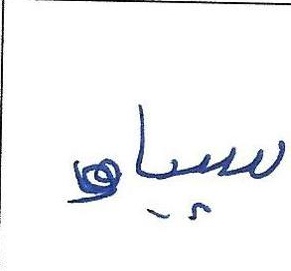 سیاه